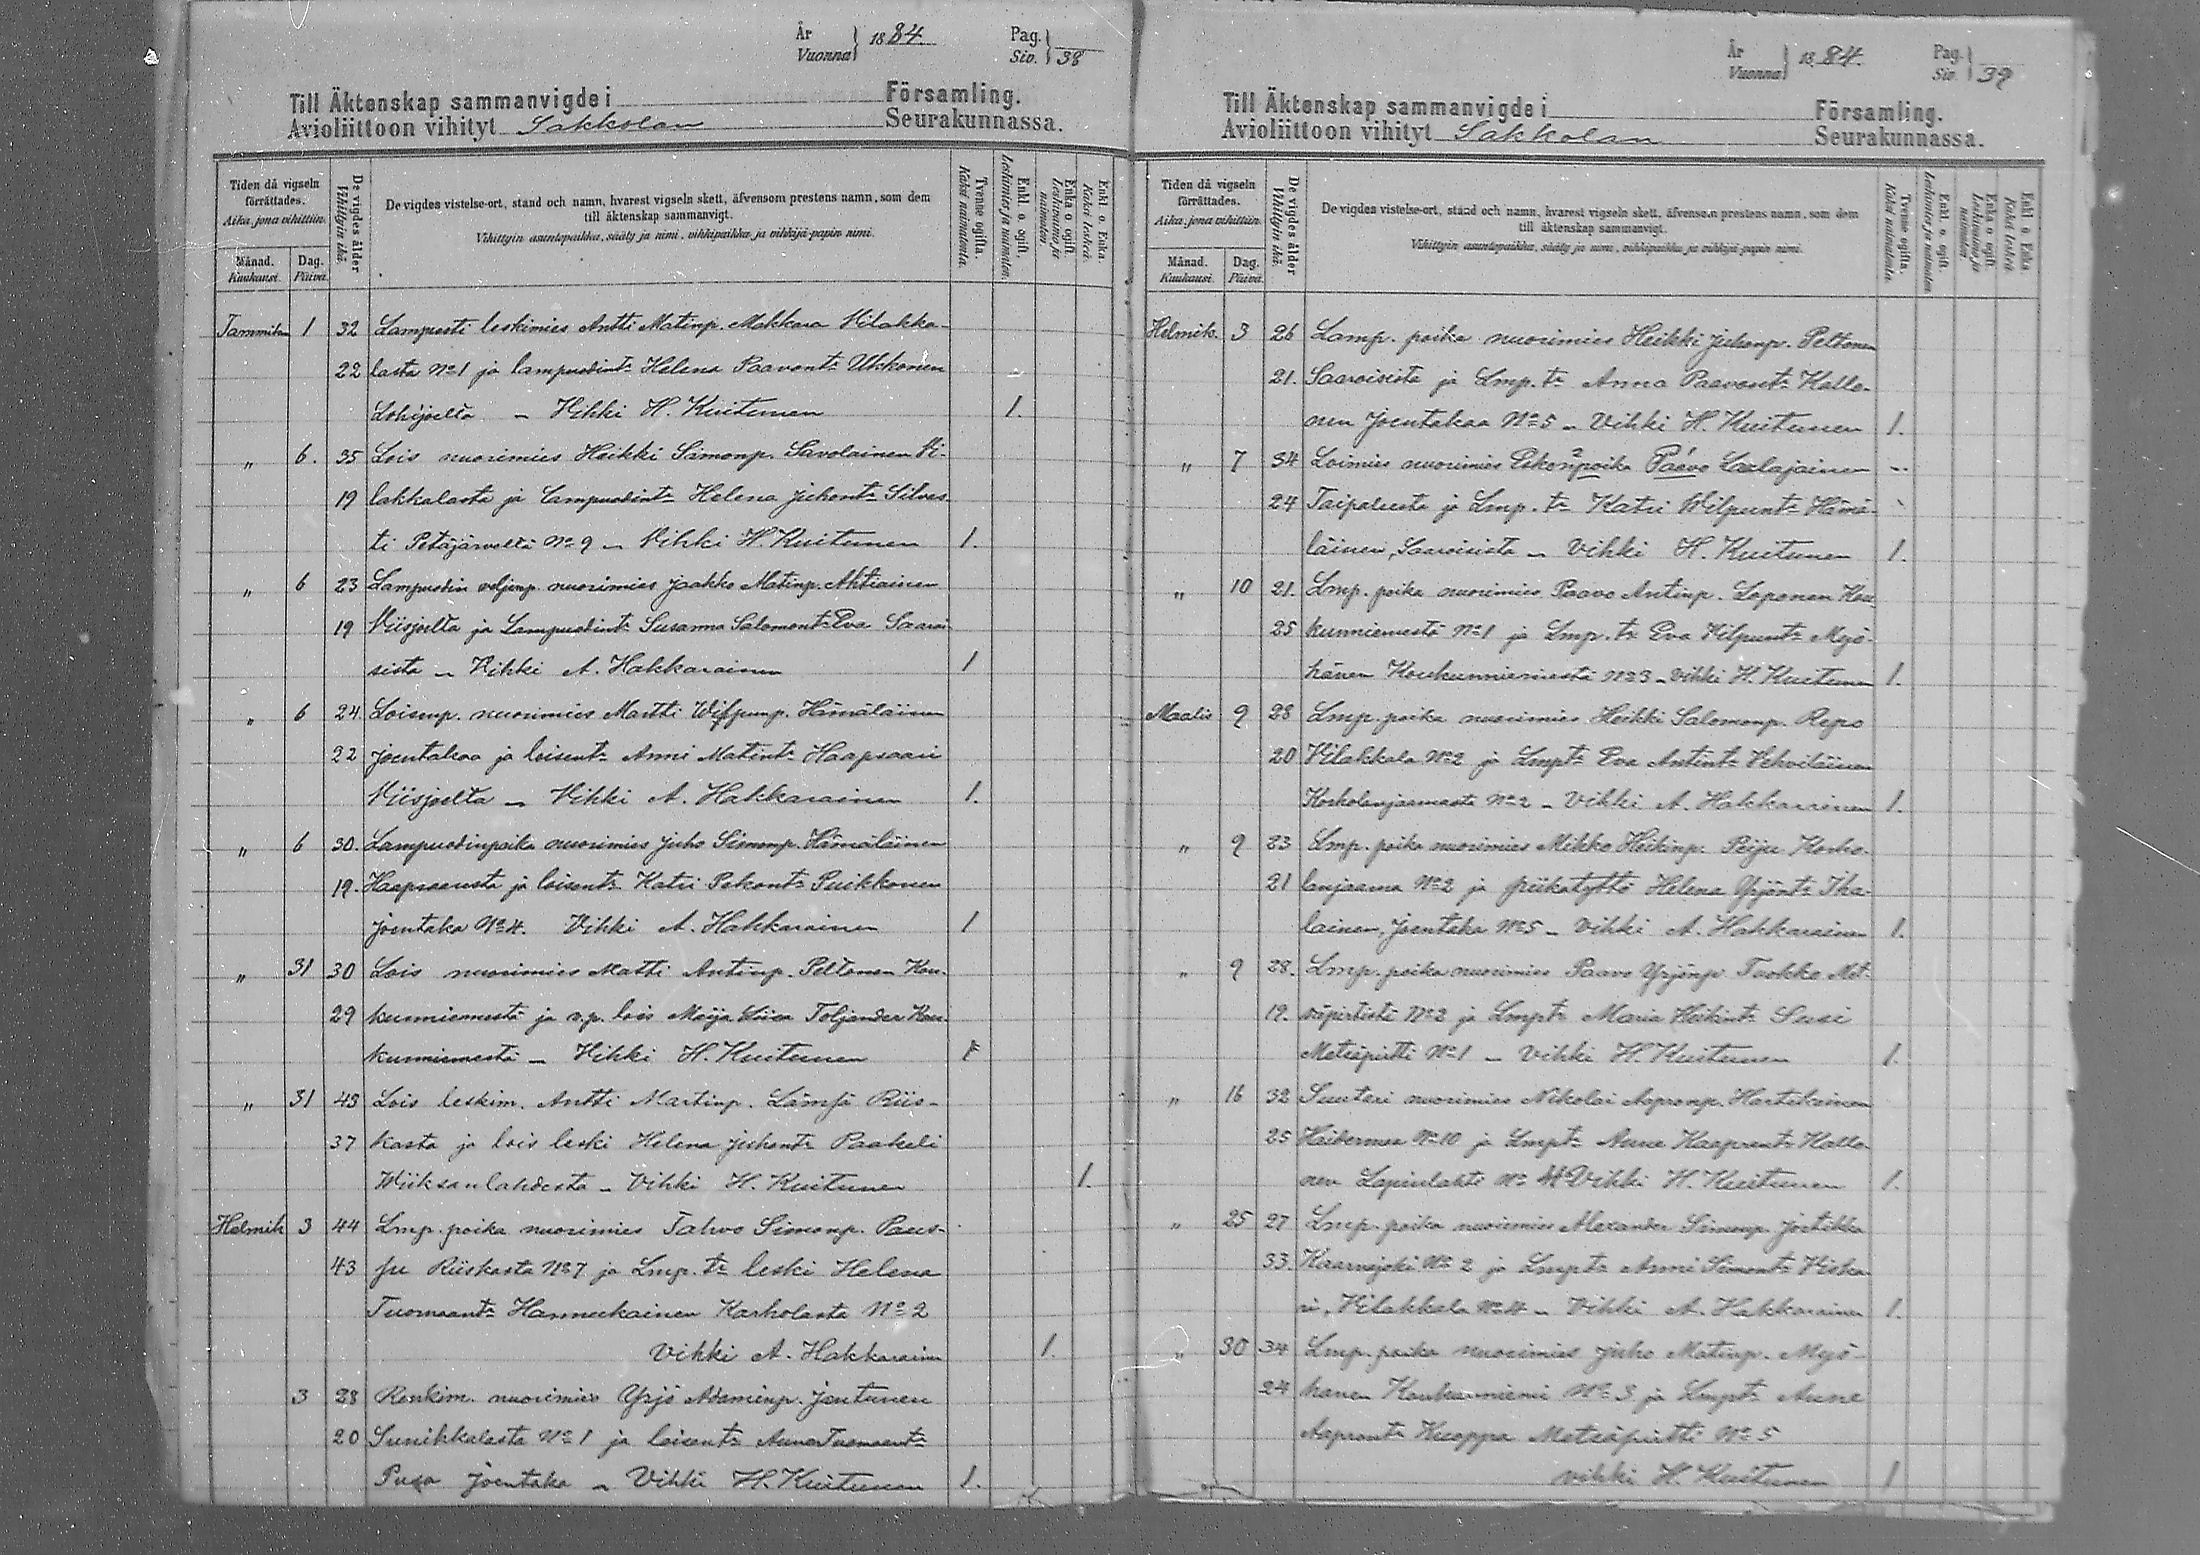 År
Vuonna } 1884.
Pag.
Siv. } 38
Till Äktenskap sammanvigde i Församling.
Avioliittoon vihityt Sakkolan Seurakunnassa.
Tiden då vigseln förrättades.
Aika, jona vihittiin.
Månad.
Kuukausi.
Dag.
Päivä.
De vigdes ålder
Vihittyin ikä.
De vigdes vistelse-ort, stand och namn, hvarest vigseln skett, äfvensom prestens namn, som dem
till äktenskap sammanvigt.
Vihittyin asuntopaikka, sääty ja nimi, vihkipaikka ja vihkijä-papin nimi.
Tvenne ogifta.
Kaksi naimatonta.
Enkl. o. ogift.
Leskimies ja naimaton.
Enka o. ogift.
Leskivaimo ja naimaton
Enkl. o. Enka.
Kaksi leskeä.
Tammikuu 1 32 Lampuoti leskimies Antti Matinp. Makkara Vilakka-
22 lasta No 1 ja lampuodint. Helena Paavont. Ukkonen
Lohijoelta – Vihki H. Kuitunen 1.
" 6. 35 Lois nuorimies Heikki Simonp. Savolainen Vi-
19 lakkalasta ja Lampuodint. Helena Juhont. Silves
ti Petäjärveltä No 9 – Vihki H. Kuitunen 1.
" 6 23 Lampuodin veljenp. nuorimies Jaakko Matinp. Ahtiainen
19 Viisjoelta ja Lampuodint. Susanna Salomont. Eva Saaroi
sista – Vihki A. Hakkarainen 1
" 6 24 Loisenp. nuorimies Martti Wilppunp. Hämäläinen
22 Joentakaa ja loisent. Anni Matint. Haapsaari
Viisjoelta – Vihki A. Hakkarainen 1.
" 6 30. Lampuodinpoika nuorimies Juho Simonp. Hämäläinen
19. Haapsaaresta ja loisent. Katri Pekant. Puikkonen
Joentaka No 4. Vihki A. Hakkarainen 1
" 31 30 Lois nuorimies Matti Antinp. Peltonen Kou-
29 kunniemestä ja v.p. lois Maija Liisa Toljander Kou-
kunniemestä – Vihki H. Kuitunen 1
" 31 43 Lois leskim. Antti Martinp. Lämsä Riis-
37 kasta ja lois leski Helena Juhont. Paakeli
Wiiksanlahdesta – Vihki H. Kuitunen 1.
Helmik 3 44 Lmp. poika nuorimies Tahvo Simonp. Paus-
43 pu Riiskasta No 7 ja Lmp. t. leski Helena
Tuomaant. Hannukainen Karholasta No 2
Vihki A. Hakkarainen 1.
3 28 Renkim. nuorimies Yrjö Adaminp. Jantunen
20 Sunikkalasta No 1 ja loisent. Anna Tuomaant.
Pusa Joentaka – Vihki H. Kuitunen 1.
År
Vuonna } 1884.
Pag.
Siv. } 39
Till Äktenskap sammanvigde i Församling.
Avioliittoon vihityt Sakkolan Seurakunnassa.
Tiden då vigseln förrättades.
Aika, jona vihittiin.
Månad.
Kuukausi.
Dag.
Päivä.
De vigdes ålder
Vihittyin ikä.
De vigdes vistelse-ort, stånd och namn, hvarest vigseln skett, äfvensom prestens namn, som dem
till äktenskap sammanvigt.
Vihittyin asuntopaikka, sääty ja nimi, vihkipaikka ja vihkijä-papin nimi.
Tvenne ogifta.
Kaksi naimatonta.
Enkl. o. ogift.
Leskimies ja naimaton.
Enka o. ogift.
Leskivaimo ja naimaton
Enkl. o. Enka.
Kaksi leskeä.
Helmik. 3 26 Lamp. poika nuorimies Heikki Juhonp. Peltonen
21. Saaroisista ja Lmp. t. Anna Paavont. Kallo-
nen Joentakaa No 5 – Vihki H. Kuitunen 1.
" 7 34 Loimies nuorimies Eskonpoika Paavo Laulajainen
24 Taipaleesta ja Lmp. t. Katri Wilpunt. Hämä-
läinen, Saaroisista – Vihki H. Kuitunen 1.
" 10 21. Lmp. poika nuorimies Paavo Antinp. Loponen Kou
25 kunniemestä No 1 ja Lmp. t. Eva Vilpunt. Myö-
hänen Koukunniemestä No 3 – Vihki H. Kuitunen 1.
Maalis 9 28 Lmp. poika nuorimies Heikki Salomonp. Repo
20 Vilakkala No 2 ja Lmpt. Eva Antint. Vehviläinen
Karholanjaamasta No 2 – Vihki A. Hakkarainen 1.
" 9 23 Lmp. poika nuorimies Mikko Heikinp. Peiju Karho-
21 lanjaama No 2 ja piikatyttö Helena Yrjönt. Iha-
lainen, Joentaka No 5 – Vihki A. Hakkarainen 1.
" 9 28. Lmp. poika nuorimies Paavo Yrjönp. Tuokko Met-
19. säpirtistä No 2 ja Lmpt. Maria Heikint. Susi
Metsäpirtti No 1 – Vihki H. Kuitunen 1.
" 16 32 Suutari nuorimies Nikolai Aapronp. Hartikainen
25 Haitermaa No 10 ja Lmpt. Anna Kaaprent. Kallo
nen Lapinlahti No 4 Vihki H. Kuitunen 1.
" 25 27 Lmp. poika nuorimies Alexander Simonp. Jortikka
33. Kaarnajoki No 2 ja Lmpt. Anni Simont. Viska
ri, Vilakkala No 4 – Vihki A. Hakkarainen 1.
" 30 34 Lmp. poika nuorimies Juho Matinp. Myö-
24 hänen Koukunniemi No 3 ja Lmpt. Anne
Aapront. Kuoppa Metsäpirtti No 5
Vihki H. Kuitunen 1